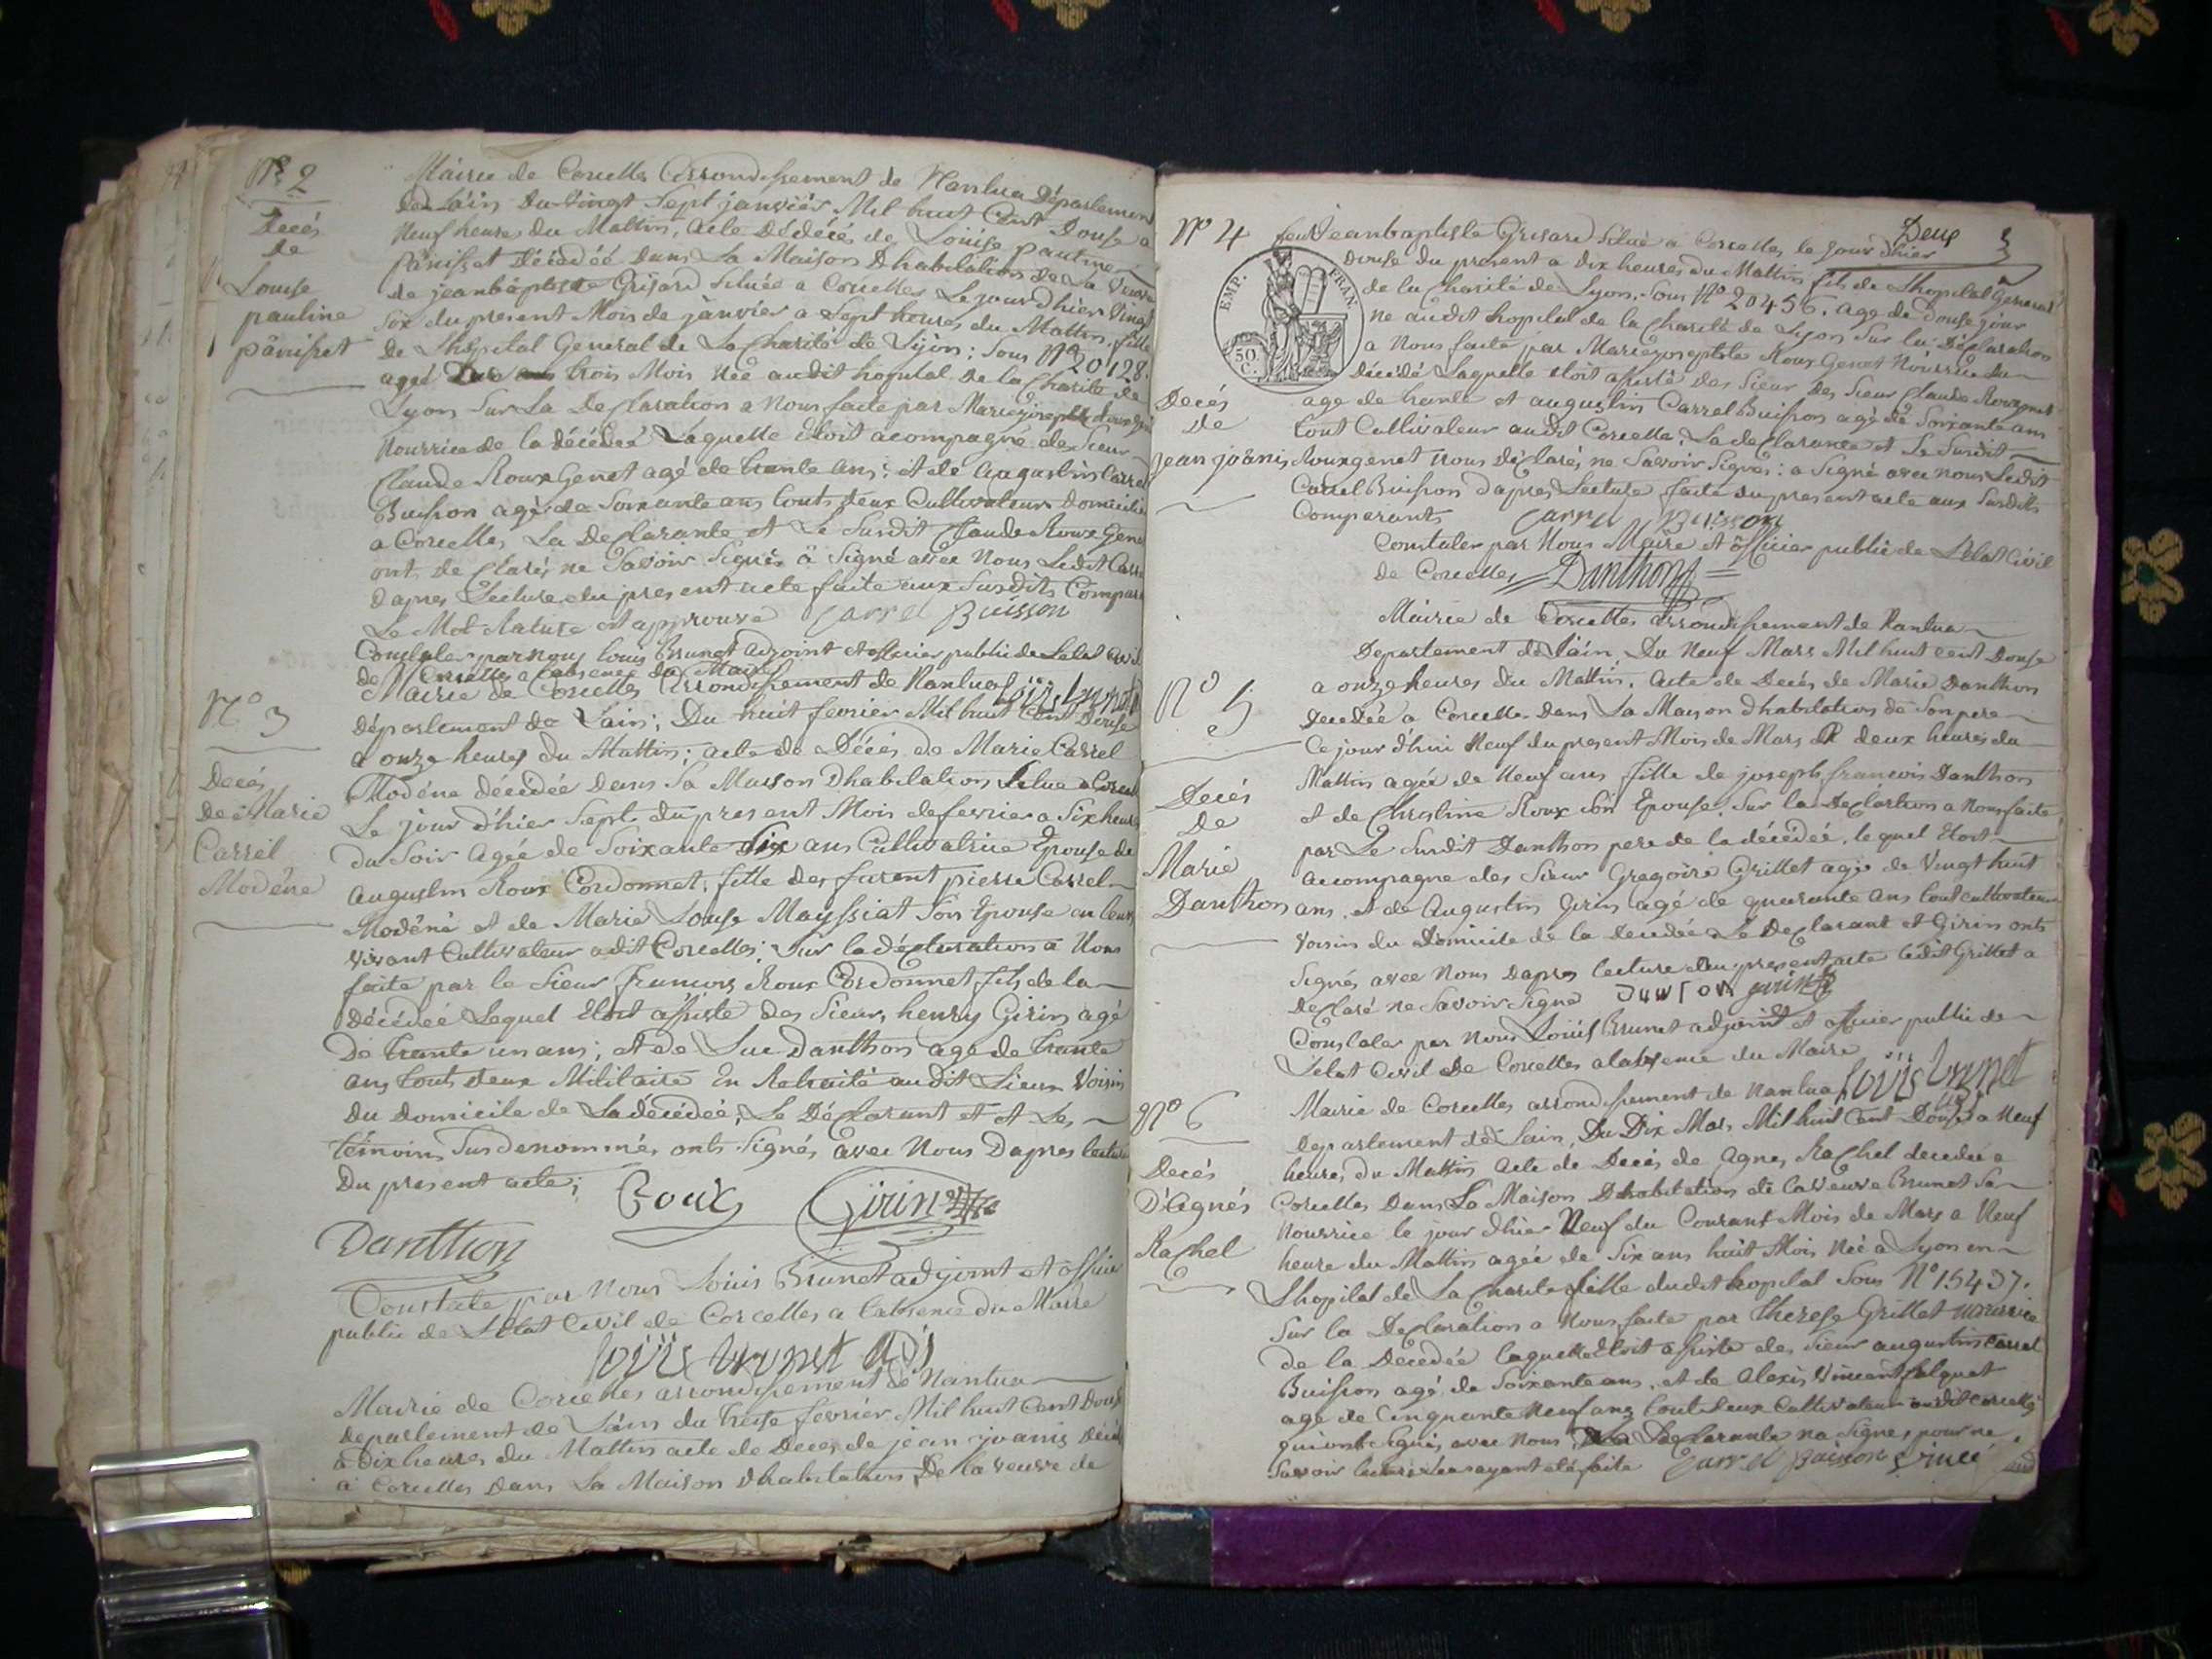 N° 2
Decés
De
Louise
pauline
pânisset
Mairie de Corcelles Arrondissement de Nantua Département
de Láin Du vingt Sept janviér Mil huit Cent Douse a
Neuf heures du Mattin, acte De décés de Loüise pauline
pânisset Décédéé Dans La Maison Dhabitation de La Veuve
de jeanbâptiste Grisard Située a Corcelles Le jour dhier Vingt
Six du present Mois de jânvier a Sept heures du Mattin, fille
de Lhôpital General de La Charité de Lyôn; Sous N° 20128.
ageé trois Mois Neé audit hopital De la Charité de
Lyon Sur La Declaration a Nous faite par Mariejosephte Rouxgenet
Nourrice de la décédeé Laquelle étoit acompagné des Sieur
Claude Roux Genet agé de trante ans; et de Augustin Carrel
Buisson agé de Soixante ans touts deux Cultivateurs Domicilié
a Corcelles, La Declarante et Le Susdit Claude Roux Genet
ont declarés ne Savoir Signér â Signé avec Nous Ledit Carrel
Dapres Lecture du present acte faite aux Susdits Comparants
Le Mot Rature est approuvé Carrel Buisson
Constater par nous louis Brunet adjoint et officier public de Letat Civil
de Corcelles a labsence du Maire
louis brunet adj
N° 3
Decés
De Marie
Carrel
Modéne
Mairie de Corcelles Arrondissement de Nantua
département de Lain; Du huit fevrier Mil huit Cent Douse
a onze heures du Mattin; acte de Décés de Marie Carrel
Modéne décédéé dans Sa Maison Dhabitation Situé a Corcelles
Le jour d'hier Sept du present Mois de fevrier a Six heures
du Soir Agée de Soixante Six ans Cultivatrice Epouse de
Augustin Roux Cordonnet; fille des furent pierre Carrel
Modéné et de Marie Louse Mayssiat Son Epouse en leurs
vivant Cultivateur adit Corcelles; Sur la déclaration a Nous
faite par le Sieur francois Roux Cordonnet fils de la
Décédeé Lequel Etoit assiste des Sieurs henry Girin agé
De trante un ans; et de Luc Danthon age de trante
ans touts deux Militaire En Retraité audit Lieux Voisin
Du Domicile de La décédeé; Le Déclarant et et Les
témoins Susdenommés onts Signés avec Nous Dapres lecture
Du present acte;
Roux Girin
Danthon
Constate par Nous Louis Brunet adjoint et officier
public de L'Etat Civil de Corcelles a labsence du Maire
louis brunet adj
Mairie de Corcelles arrondissement de Nantua
departement de Láin du treise fevriér Mil huit Cent Douse
à Dix heures du Mattin acte de Deces de jean joanis Décédé
a Corcelles Dans La Maison dhabitation De la veuve de
Deux
N° 4
EMP. FRAN.
50. C.
Decés
de
jean joânis
feu Jeanbaptiste Grisard Situé a Corcelles, le jour dhier
douse du present a dix heures du Mattin fils de Lhopital General
de la Charité de Lyon, Sous N° 20456. age de Douse jour
ne audit hopital de la Charité de Lyon Sur la Déclaration
a Nous faite par Mariejosephte Roux Genet Nourrice du
décédé Laquelle étoit assisté des Sieur Des Sieur Claude Rouxgenet
age de trante et augustin Carrel Buisson agé de Soixante ans
tout Cultivateur audit Corcelle, La declarante et Le Susdit
Rouxgenet nous déclarés ne Savoir Signés: a Signé avec nous Ledit
Carrel Buisson dapres Lecture faite du present acte aux Susdits
Comparants Carrel Buisson
Constater par Nous Maire et officier public de L'etat Civil
de Corcelles Danthon
N° 5
Decés
De
Marie
Danthon
Mairie de Corcelles Arrondissement de Nantua
Departement de láin Du Neuf Mars Mil huit cent Douse
a onze heures du Mattin, acte de Decés de Marie Danthon
Decedée a Corcelles Dans La Maison dhabitation de Son pere
Ce jour d'hui Neuf du present Mois de Mars a deux heures du
Mattin agée de Neuf ans fille de joseph francois Danthon
et de Christine Roux Son Epouse, Sur la Declartion a Nous faite
par Le Susdit Danthon pere de la décédeé, lequel étoit
accompagne des Sieur Gregoire Grillet agé de Vingt huit
ans, et de Augustin Girin agé de quarante ans tout cultivateur
voisin du Domicile de la Decedée Le Declarant et Girin onts
Signés avec Nous Dapres lecture du present acte ledit Grillet a
declaré ne Savoir Signe Danton girin
Constater par Nous Louis Brunet adjoint et officier public de
Létat Civil De Corcelles a labsence du Maire louis brunet
N° 6
Decés
D'Agnés
Rachel
Mairie de Corcelles arrondissement de Nantua
Departement de Lain, Du Dix Mars Mil huit Cent Douse a Neuf
heures du Mattin acte de Decés de Agnes Rachel decedeé a
Corcelles Dans La Maison Dhabitation de la veuve Brunet Sa
Nourrice le jour dhier Neuf du Courant Mois de Mars a Neuf
heure du Mattin agée de Six ans huit Mois Née a Lyon en
Lhopital de La Charite fille dudit hopital Sous N° 15437.
Sur la Declaration a Nous faite par Therese Grillet nourrice
de la Decedée laquelle étoit assiste des Sieur augustin Carrel
Buisson agé de Soixante ans, et de Alexis Vincent falquet
age de Cinquante Neuf ans tout deux Cultivateur audit Corcelles
qui onts Signés avec Nous La Declarante na Signe, pour ne
Savoir lecture leur ayant eté faite Carrel Buisson Vincé